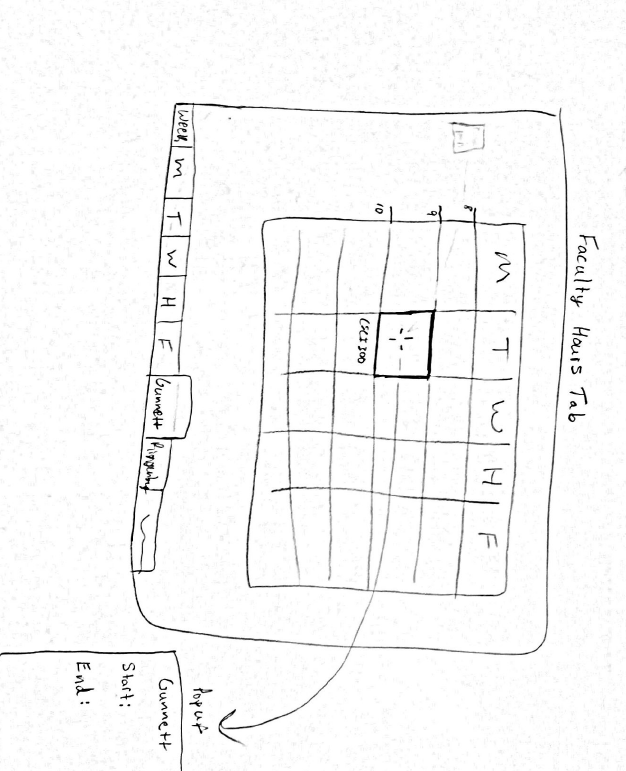 Faculty Hours Tab
M T W H F
8
9
10
CSCI 300
Week M T W H F Gunnett
Popup
Gunnett
Start:
End: